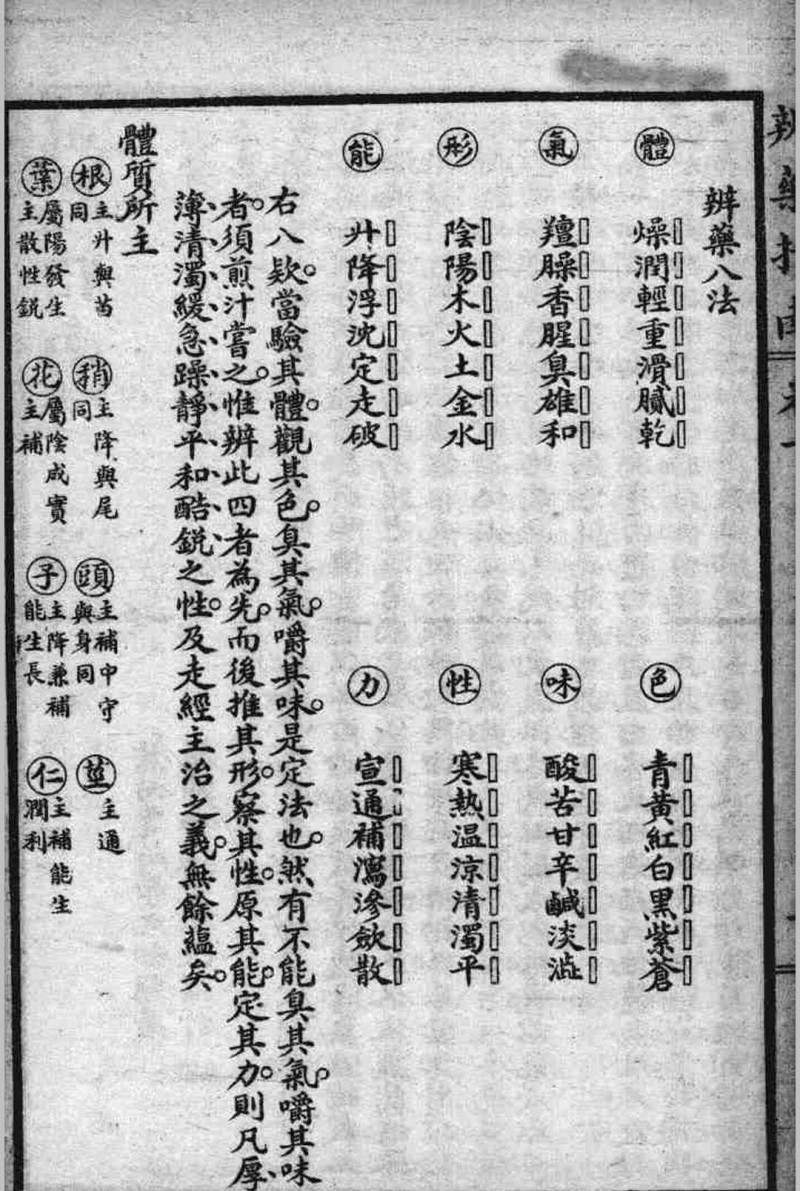 辨藥八法
體 燥潤輕重滑膩乾
色 青黃紅白黑紫蒼
氣 羶臊香腥臭雄和
味 酸苦甘辛鹹淡澁
形 陰陽木火土金水
性 寒熱温涼清濁平
能 升降浮沈定走破
力 宣通補瀉滲斂散
右八欵。當驗其體。觀其色。臭其氣。嚼其味。是定法也。然有不能臭其氣。嚼其味
者。須煎汁嘗之。惟辨此四者為先。而後推其形。察其性。原其能。定其力。則凡厚、
薄、清、濁、緩、急、躁、靜、平、和、酷、銳、之性。及走經主治之義。無餘蘊矣。
體質所主
根 主升與苗
同
稍 主降與尾
同
頭 主補中守
與身同
莖 主通
葉 屬陽發生
主散性銳
花 屬陰成實
主補
子 主降兼補
能生長
仁 主補能生
潤利